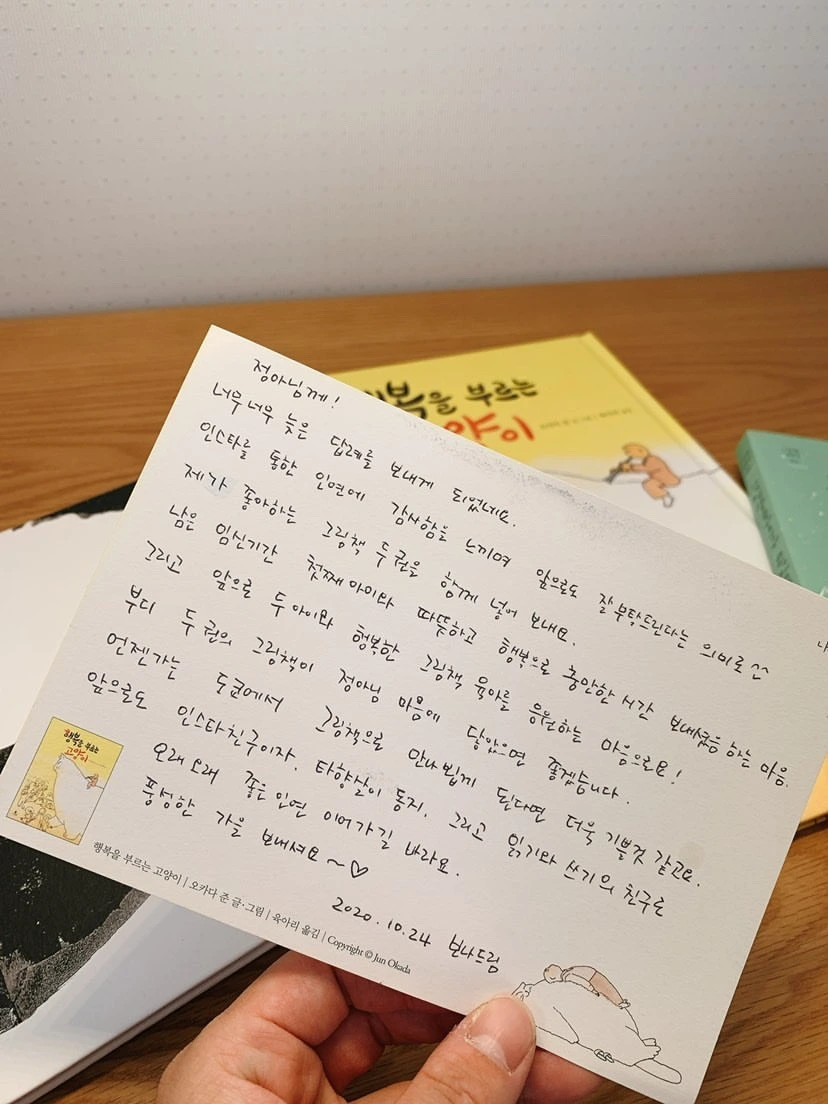 행복을 부르는
고양이
정아님께!
너무너무 늦은 답례를 보내게 되었네요.
인스타를 통한 인연에 감사함을 느끼며 앞으로도 잘 부탁드린다는 의미로 ^^
제가 좋아하는 그림책 두 권을 함께 넣어 보내요.
남은 임신기간 첫째아이와 따뜻하고 행복으로 충만한 시간 보내셨음 하는 마음.
그리고 앞으로 두 아이와 행복한 그림책 육아를 응원하는 마음으로요!
부디 두 권의 그림책이 정아님 마음에 닿았으면 좋겠습니다.
언젠가는 도쿄에서 그림책으로 만나뵙게 된다면 더욱 기쁠것 같고요.
앞으로도 인스타친구이자, 타향살이 동지, 그리고 읽기와 쓰기의 친구로
오래오래 좋은 인연 이어가길 바라요.
풍성한 가을 보내셔요~♡
2020.10.24 보나드림
행복을 부르는
고양이
행복을 부르는 고양이 | 오카다 준 글·그림 | 육아리 옮김 | Copyright © Jun Okada